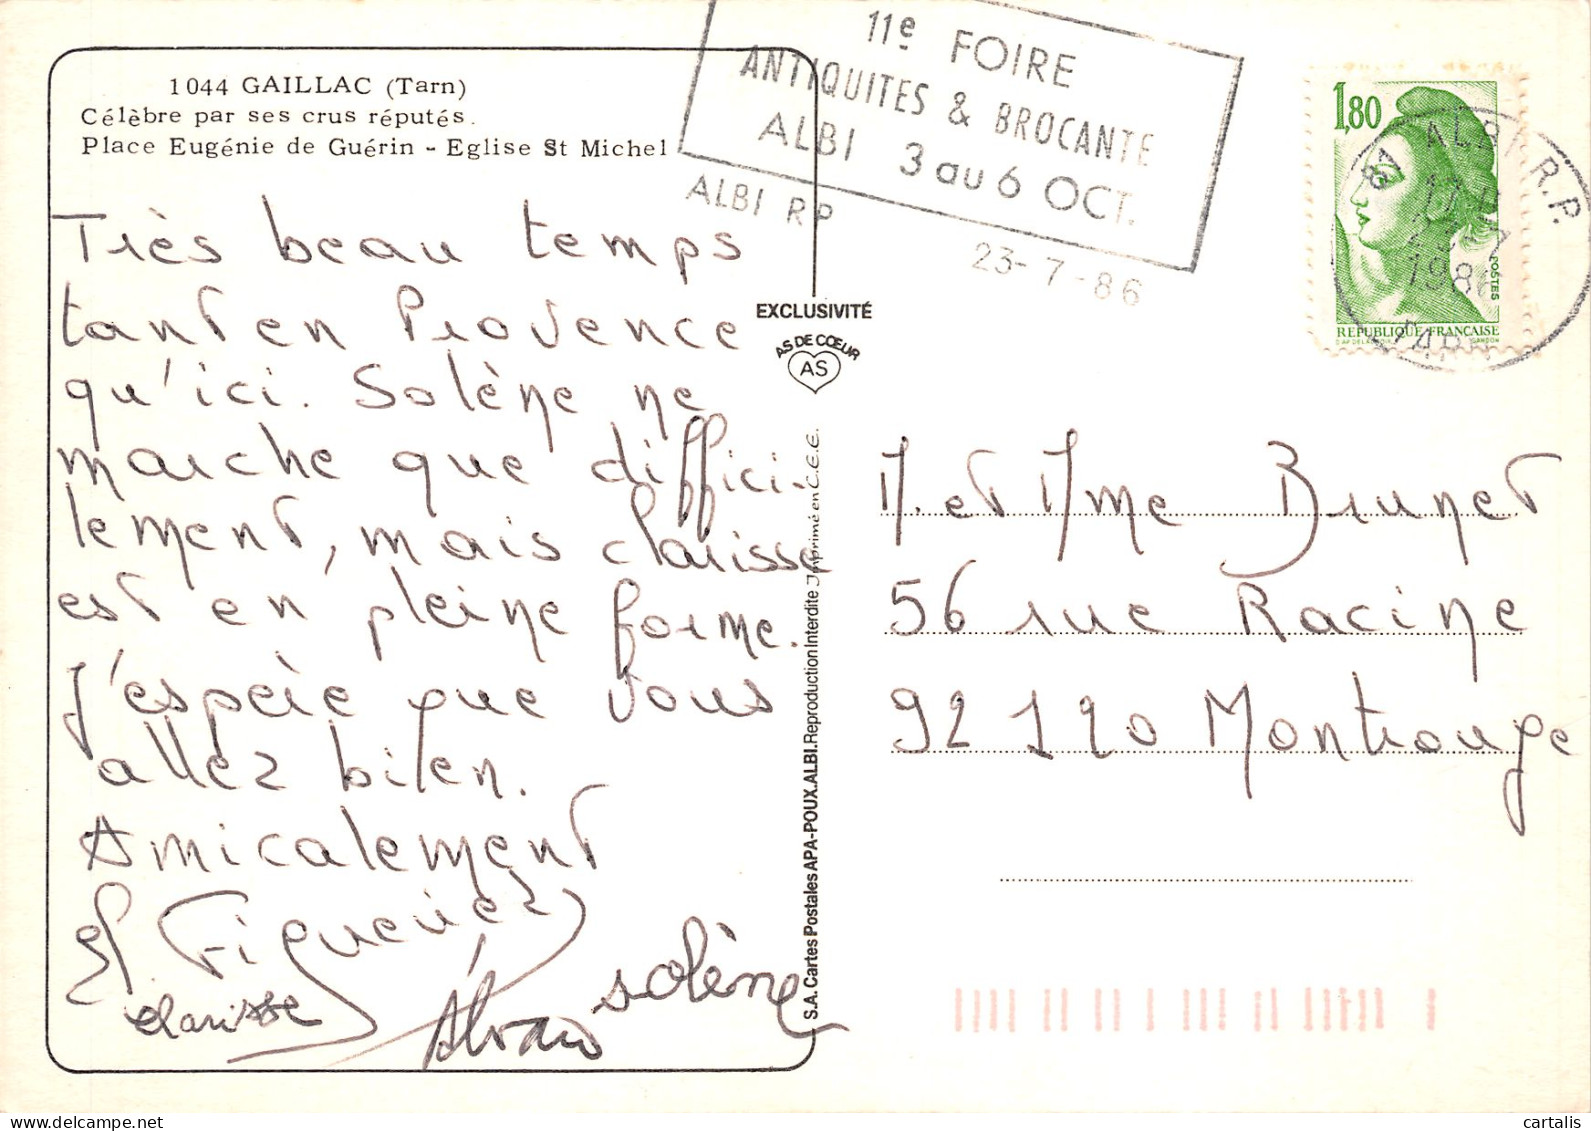 1044 GAILLAC (Tarn)
Célèbre par ses crus réputés.
Place Eugénie de Guérin - Eglise St Michel
11e FOIRE
ANTIQUITES & BROCANTE
ALBI 3 au 6 OCT.
ALBI RP
23-7-86
1,80
POSTES
REPUBLIQUE FRANCAISE
81 ALBI R.P.
1986
TARN
Très beau temps
tant en Provence
qu'ici. Solène ne
marche que diffici-
lement, mais Clarisse
est en pleine forme.
J'espère que vous
allez bien.
Amicalement
Clarisse
Alvaro
solène
EXCLUSIVITÉ
AS DE CŒUR
AS
S.A. Cartes Postales APA-POUX.ALBI. Reproduction Interdite Imprimé en C.E.E.
M. et Mme Brunet
56 rue Racine
92120 Montrouge
cartalis